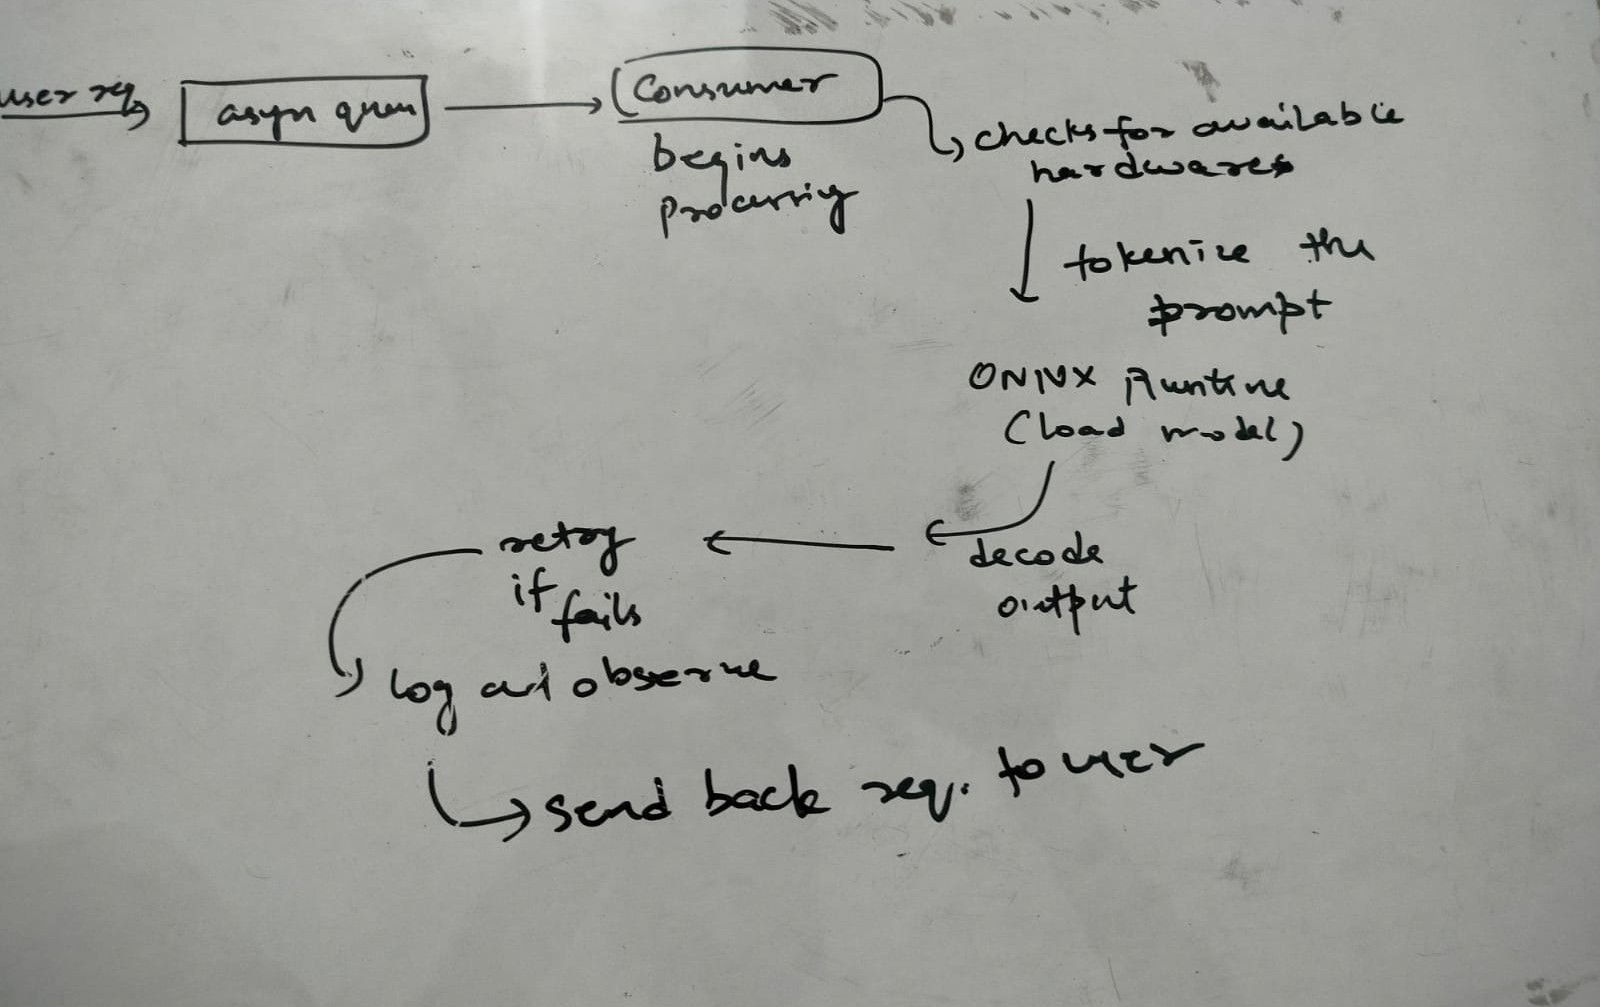 user req
asyn queu
Consumer
begins
processing
checks for available
hardwares
tokenize the
prompt
ONNX Runtime
(load model)
decode
output
retry
if
fails
log and observe
send back req. to user